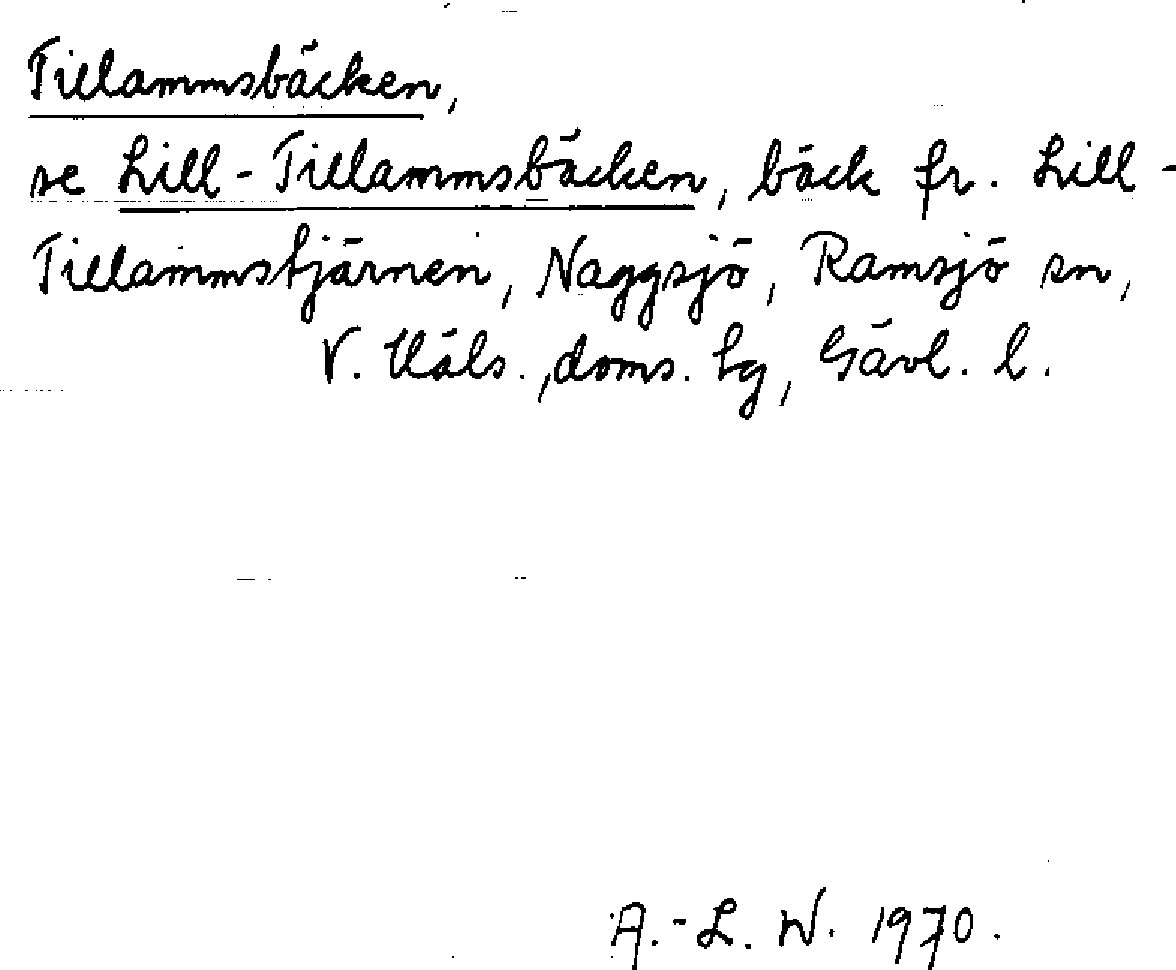 Tillammsbäcken,
se Lill-Tillammsbäcken, bäck fr. Lill-
Tillammstjärnen, Naggsjö, Ramsjö sn,
V. Häls., doms. lg, Gävl. l.
A.-L. W. 1970.